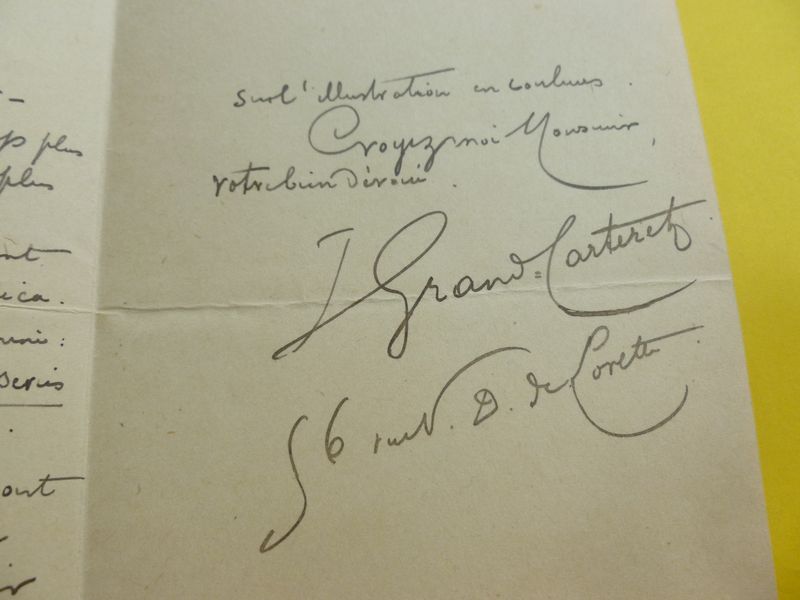 plus
plus
ica.
sur l'illustration en couleurs.
Croyez moi Monsieur,
votre bien dévoué.
J Grand=Carteret
56 rue N. D. de Lorette.